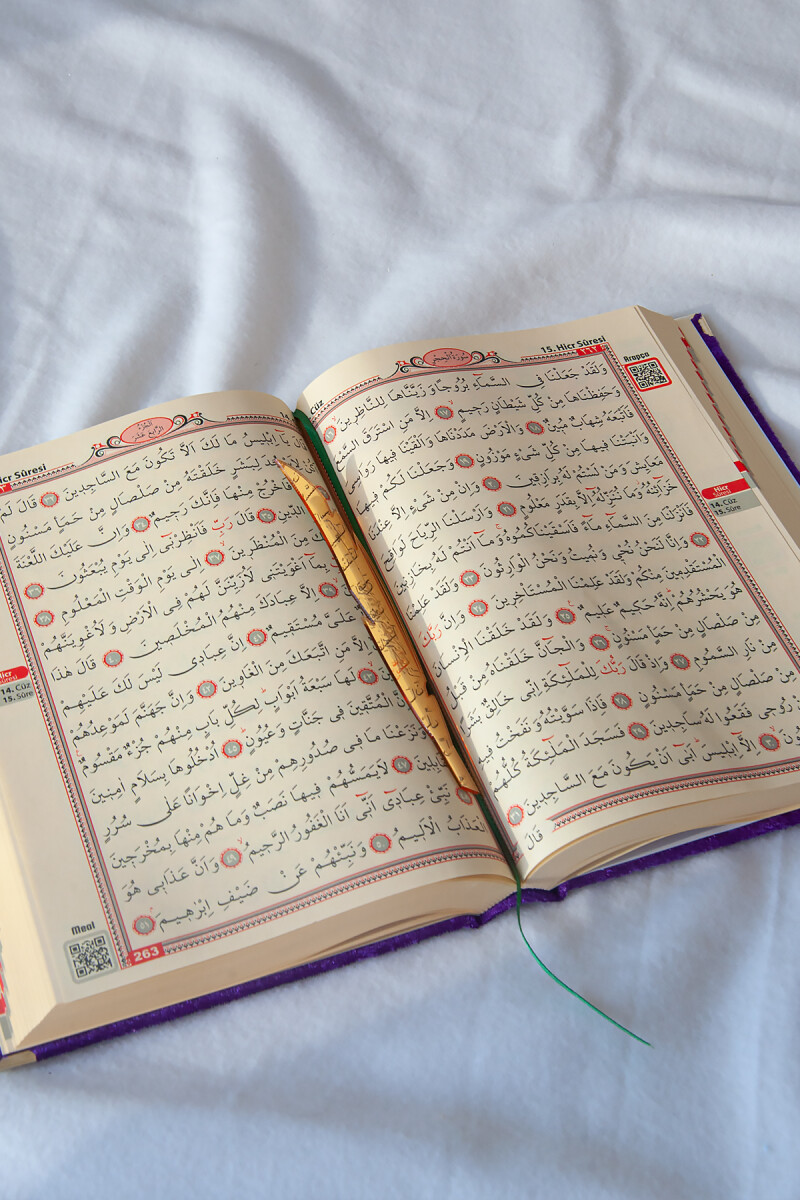 Cüz
سُورَةُ الْحِجْرِ
15. Hicr Sûresi
٢٦٢
Arapça
وَلَقَدْ جَعَلْنَا فِى السَّمَاءِ بُرُوجًا وَزَيَّنَّاهَا لِلنَّاظِرِينَ ١٦
وَحَفِظْنَاهَا مِنْ كُلِّ شَيْطَانٍ رَجِيمٍ ١٧ اِلَّا مَنِ اسْتَرَقَ السَّمْعَ
فَاَتْبَعَهُ شِهَابٌ مُبِينٌ ١٨ وَالْاَرْضَ مَدَدْنَاهَا وَاَلْقَيْنَا فِيهَا رَوَاسِيَ
وَاَنْبَتْنَا فِيهَا مِنْ كُلِّ شَىْءٍ مَوْزُونٍ ١٩ وَجَعَلْنَا لَكُمْ فِيهَا
مَعَايِشَ وَمَنْ لَسْتُمْ لَهُ بِرَازِقِينَ ٢٠ وَاِنْ مِنْ شَىْءٍ اِلَّا عِنْدَنَا
خَزَائِنُهُ وَمَا نُنَزِّلُهُ اِلَّا بِقَدَرٍ مَعْلُومٍ ٢١ وَاَرْسَلْنَا الرِّيَاحَ لَوَاقِحَ
فَاَنْزَلْنَا مِنَ السَّمَاءِ مَاءً فَاَسْقَيْنَاكُمُوهُ وَمَا اَنْتُمْ لَهُ بِخَازِنِينَ
٢٢ وَاِنَّا لَنَحْنُ نُحْيِى وَنُمِيتُ وَنَحْنُ الْوَارِثُونَ ٢٣ وَلَقَدْ عَلِمْنَا
الْمُسْتَقْدِمِينَ مِنْكُمْ وَلَقَدْ عَلِمْنَا الْمُسْتَأْخِرِينَ ٢٤ وَاِنَّ رَبَّكَ
هُوَ يَحْشُرُهُمْ اِنَّهُ حَكِيمٌ عَلِيمٌ ٢٥ وَلَقَدْ خَلَقْنَا الْاِنْسَانَ
مِنْ صَلْصَالٍ مِنْ حَمَاٍ مَسْنُونٍ ٢٦ وَالْجَانَّ خَلَقْنَاهُ مِنْ قَبْلُ
مِنْ نَارِ السَّمُومِ ٢٧ وَاِذْ قَالَ رَبُّكَ لِلْمَلٰئِكَةِ اِنِّى خَالِقٌ
مِنْ صَلْصَالٍ مِنْ حَمَاٍ مَسْنُونٍ ٢٨ فَاِذَا سَوَّيْتُهُ وَنَفَخْتُ فِيهِ
مِنْ رُوحِى فَقَعُوا لَهُ سَاجِدِينَ ٢٩ فَسَجَدَ الْمَلٰئِكَةُ كُلُّهُمْ
٣٠ اِلَّا اِبْلِيسَ اَبٰى اَنْ يَكُونَ مَعَ السَّاجِدِينَ ٣١
قَالَ
Hicr
sûresi
14. Cüz
15. Sûre
الْجُزْءُ الرَّابِعُ عَشَرَ
Hicr Sûresi
يَا اِبْلِيسُ مَا لَكَ اَلَّا تَكُونَ مَعَ السَّاجِدِينَ ٣٢ قَالَ لَمْ
لِبَشَرٍ خَلَقْتَهُ مِنْ صَلْصَالٍ مِنْ حَمَاٍ مَسْنُونٍ
فَاخْرُجْ مِنْهَا فَاِنَّكَ رَجِيمٌ ٣٤ وَاِنَّ عَلَيْكَ اللَّعْنَةَ
الدِّينِ ٣٥ قَالَ رَبِّ فَاَنْظِرْنِى اِلٰى يَوْمِ يُبْعَثُونَ ٣٦
مِنَ الْمُنْظَرِينَ ٣٧ اِلٰى يَوْمِ الْوَقْتِ الْمَعْلُومِ ٣٨
بِمَا اَغْوَيْتَنِى لَاُزَيِّنَنَّ لَهُمْ فِى الْاَرْضِ وَلَاُغْوِيَنَّهُمْ
٣٩ اِلَّا عِبَادَكَ مِنْهُمُ الْمُخْلَصِينَ ٤٠ قَالَ هٰذَا
عَلَىَّ مُسْتَقِيمٌ ٤١ اِنَّ عِبَادِى لَيْسَ لَكَ عَلَيْهِمْ
اِلَّا مَنِ اتَّبَعَكَ مِنَ الْغَاوِينَ ٤٢ وَاِنَّ جَهَنَّمَ لَمَوْعِدُهُمْ
٤٣ لَهَا سَبْعَةُ اَبْوَابٍ لِكُلِّ بَابٍ مِنْهُمْ جُزْءٌ مَقْسُومٌ
الْمُتَّقِينَ فِى جَنَّاتٍ وَعُيُونٍ ٤٥ اُدْخُلُوهَا بِسَلَامٍ اٰمِنِينَ
وَنَزَعْنَا مَا فِى صُدُورِهِمْ مِنْ غِلٍّ اِخْوَانًا عَلٰى سُرُرٍ
٤٧ لَا يَمَسُّهُمْ فِيهَا نَصَبٌ وَمَا هُمْ مِنْهَا بِمُخْرَجِينَ
نَبِّئْ عِبَادِى اَنِّى اَنَا الْغَفُورُ الرَّحِيمُ ٤٩ وَاَنَّ عَذَابِى هُوَ
الْعَذَابُ الْاَلِيمُ ٥٠ وَنَبِّئْهُمْ عَنْ ضَيْفِ اِبْرٰهِيمَ ٥١
Hicr
sûresi
14. Cüz
15. Sûre
Meal
263